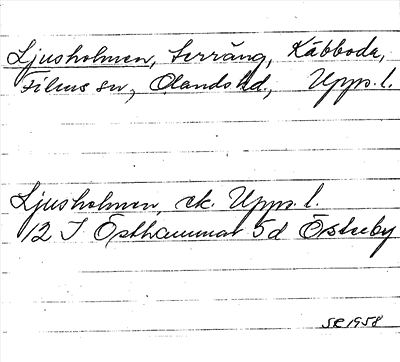 Ljusholmen, terräng, Kåbboda,
Films sn, Olands hd, Upps. l.
Ljusholmen, ek. Upps. l.
12 I Östhammar 5d Österby
SR 1958